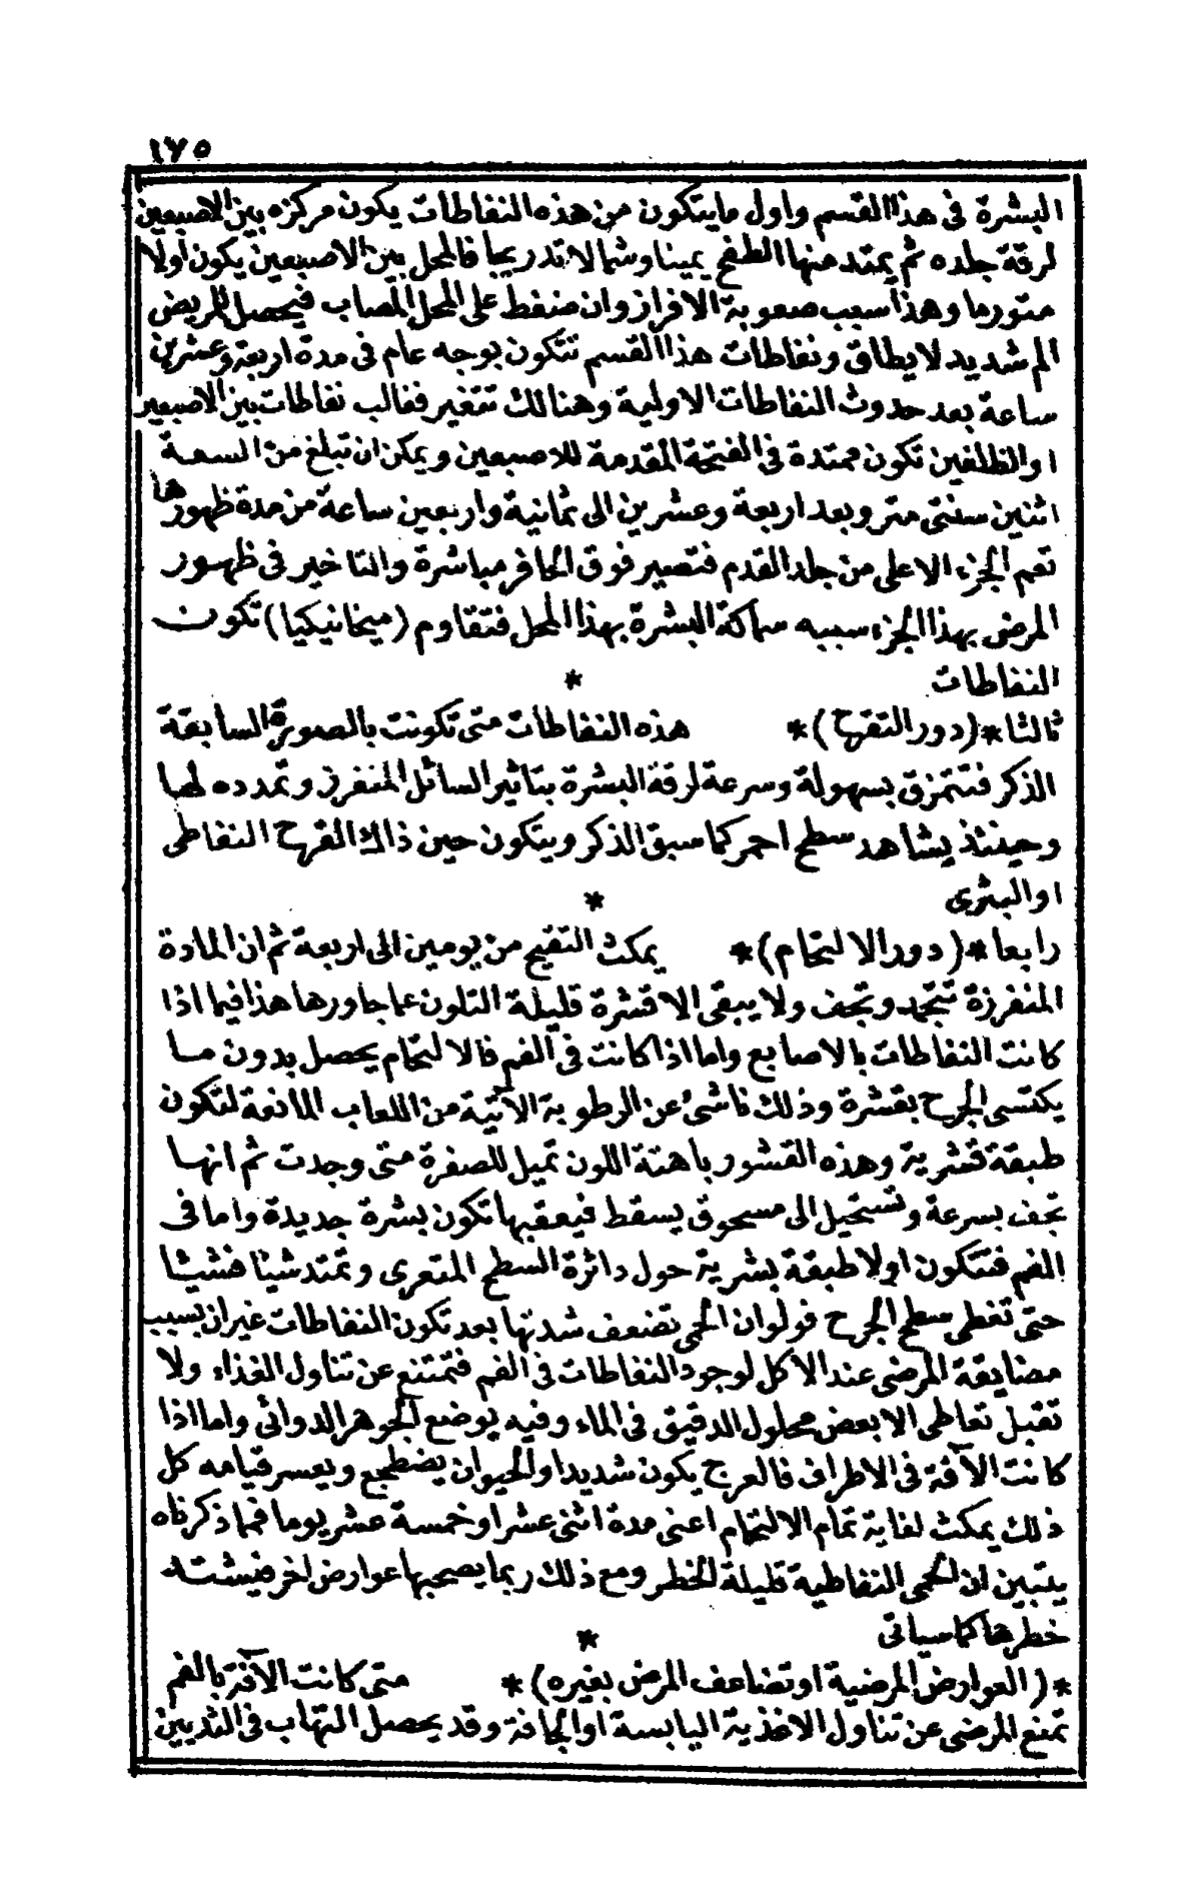 ١٧٥
البشرة فى هذا القسم واول ما يتكون من هذه النفاطات يكون مركزه بين الاصبعين
لرقة جلده ثم يمتد منها الطفح يمينا وشمالا تدريجا فالمحل بين الاصبعين يكون اولا
متورما وهذا سبب صعوبة الافراز وان ضغط على المحل المصاب فيحصل للمريض
الم شديد لا يطاق ونفاطات هذا القسم تتكون بوجه عام فى مدة اربعة وعشرين
ساعة بعد حدوث النفاطات الاولية وهنالك تتغير فغالب نفاطات بين الاصبعين
او الظلفين تكون ممتدة فى الفتحة المقدمة للاصبعين ويمكن ان تبلغ من السعة
اثنين سنتى متر وبعد اربعة وعشرين الى ثمانية واربعين ساعة من مدة ظهورها
تعم الجزء الاعلى من جلد القدم فتصير فوق الحافر مباشرة والتاخير فى ظهور
المرض بهذا الجزء سببه سماكة البشرة بهذا المحل فتقاوم (ميخانيكيا) تكون
النفاطات *
ثالثا *(دور التقرح)* هذه النفاطات متى تكونت بالصورة السابقة
الذكر فتتمزق بسهولة وسرعة لرقة البشرة بتاثير السائل المنفرز وتمدده لها
وحينئذ يشاهد سطح احمر كما سبق الذكر ويتكون حين ذاك القرح النفاطى
او البثرى *
رابعا *(دور الالتحام)* يمكث التقيح من يومين الى اربعة ثم ان المادة
المنفرزة تتجمد وتجف ولا يبقى الا قشرة قليلة التلون عما جاورها هذا فيما اذا
كانت النفاطات بالاصابع واما اذا كانت فى الفم فالالتحام يحصل بدون ما
يكتسى الجرح بقشرة وذلك ناشئ عن الرطوبة الآتية من اللعاب المانعة لتكون
طبقة قشرية وهذه القشور باهتة اللون تميل للصفرة متى وجدت ثم انها
تجف بسرعة وتستحيل الى مسحوق يسقط فيعقبها تكون بشرة جديدة واما فى
الفم فتتكون اولا طبقة بشرية حول دائرة السطح المتعرى وتمتد شيئا فشيئا
حتى تغطى سطح الجرح فولوان الحمى تضعف شدتها بعد تكون النفاطات غير ان بسبب
مضايقة المرضى عند الاكل لوجود النفاطات فى الفم فتمتنع عن تناول الغذاء ولا
تقبل تعاطى الا بعض محلول الدقيق فى الماء وفيه يوضع الجوهر الدوائى واما اذا
كانت الآفة فى الاطراف فالعرج يكون شديدا والحيوان يضطجع ويعسر قيامه كل
ذلك يمكث لغاية تمام الالتحام اعنى مدة اثنى عشر او خمسة عشر يوما فمما ذكرناه
يتبين ان الحمى النفاطية قليلة الخطر ومع ذلك ربما يصحبها عوارض اخر فيشتد
خطرها كما سياتى *
*(العوارض المرضية او تضاعف المرض بغيره)* متى كانت الآفة بالفم
تمنع المرضى عن تناول الاغذية اليابسة او الجافة وقد يحصل التهاب فى الثديين